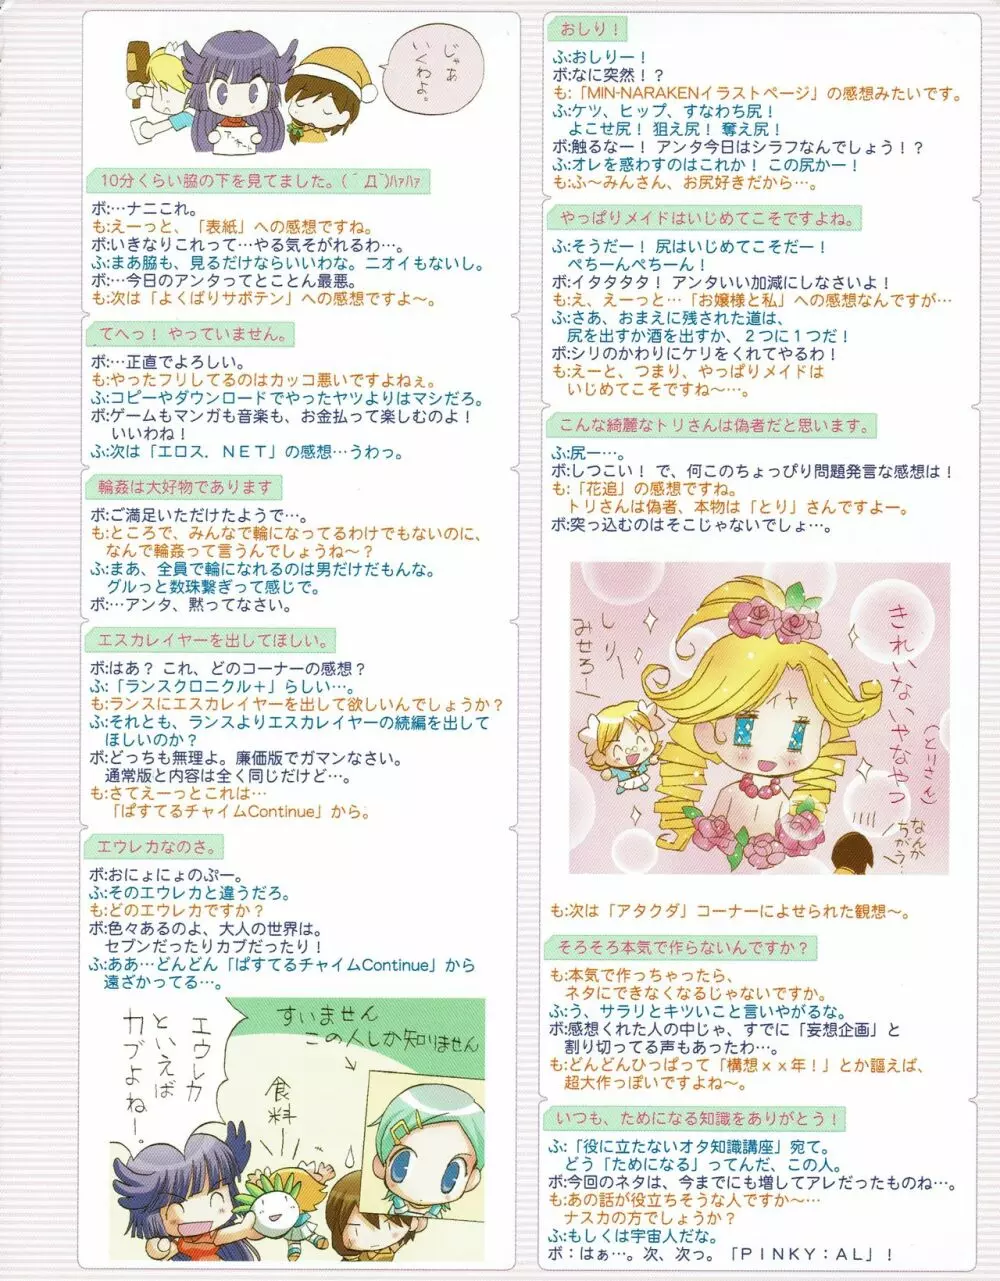 じゃあ
いくわよ。
アンケート
10分くらい脇の下を見てました。(´Д`)ﾊｧﾊｧ
ボ:…ナニこれ。
も:えーっと、「表紙」への感想ですね。
ボ:いきなりこれって…やる気そがれるわ…。
ふ:まあ脇も、見るだけならいいわな。ニオイもないし。
ボ:…今日のアンタってとことん最悪。
も:次は「よくばりサボテン」への感想ですよ～。
てへっ！ やっていません。
ボ:…正直でよろしい。
も:やったフリしてるのはカッコ悪いですよねぇ。
ふ:コピーやダウンロードでやったヤツよりはマシだろ。
ボ:ゲームもマンガも音楽も、お金払って楽しむのよ！
いいわね！
ふ:次は「エロス．ＮＥＴ」の感想…うわっ。
輪姦は大好物であります
ボ:ご満足いただけたようで…。
も:ところで、みんなで輪になってるわけでもないのに、
なんで輪姦って言うんでしょうね～？
ふ:まあ、全員で輪になれるのは男だけだもんな。
グルっと数珠繋ぎって感じで。
ボ:…アンタ、黙ってなさい。
エスカレイヤーを出してほしい。
ボ:はあ？ これ、どのコーナーの感想？
ふ:「ランスクロニクル＋」らしい…。
も:ランスにエスカレイヤーを出して欲しいんでしょうか？
ふ:それとも、ランスよりエスカレイヤーの続編を出して
ほしいのか？
ボ:どっちも無理よ。廉価版でガマンなさい。
通常版と内容は全く同じだけど…。
も:さてえーっとこれは…
「ぱすてるチャイムContinue」から。
エウレカなのさ。
ボ:おにょにょのぷー。
ふ:そのエウレカと違うだろ。
も:どのエウレカですか？
ボ:色々あるのよ、大人の世界は。
セブンだったりカブだったり！
ふ:ああ…どんどん「ぱすてるチャイムContinue」から
遠ざかってる…。
エウレカ
といえば
カブよねー。
すいません
この人しか知りません
食料ー
おしり！
ふ:おしりー！
ボ:なに突然！？
も:「MIN-NARAKENイラストページ」の感想みたいです。
ふ:ケツ、ヒップ、すなわち尻！
よこせ尻！ 狙え尻！ 奪え尻！
ボ:触るなー！ アンタ今日はシラフなんでしょう！？
ふ:オレを惑わすのはこれか！ この尻かー！
も:ふ～みんさん、お尻好きだから…。
やっぱりメイドはいじめてこそですよね。
ふ:そうだー！ 尻はいじめてこそだー！
ぺちーんぺちーん！
ボ:イタタタタ！ アンタいい加減にしなさいよ！
も:え、えーっと…「お嬢様と私」への感想なんですが…
ふ:さあ、おまえに残された道は、
尻を出すか酒を出すか、２つに１つだ！
ボ:シリのかわりにケリをくれてやるわ！
も:えーと、つまり、やっぱりメイドは
いじめてこそですね～…。
こんな綺麗なトリさんは偽者だと思います。
ふ:尻ー…。
ボ:しつこい！ で、何このちょっぴり問題発言な感想は！
も:「花追」の感想ですね。
トリさんは偽者、本物は「とり」さんですよー。
ボ:突っ込むのはそこじゃないでしょ…。
きれいないやなやつ
(とりさん)
イヤ
しりー
みせろー
なんか
ちがう…
も:次は「アタクダ」コーナーによせられた観想～。
そろそろ本気で作らないんですか？
も:本気で作っちゃったら、
ネタにできなくなるじゃないですか。
ふ:う、サラリとキツいこと言いやがるな。
ボ:感想くれた人の中じゃ、すでに「妄想企画」と
割り切ってる声もあったわ…。
も:どんどんひっぱって「構想ｘｘ年！」とか謳えば、
超大作っぽいですよね～。
いつも、ためになる知識をありがとう！
ふ:「役に立たないオタ知識講座」宛て。
どう「ためになる」ってんだ、この人。
ボ:今回のネタは、今までにも増してアレだったものね…。
も:あの話が役立ちそうな人ですか～…
ナスカの方でしょうか？
ふ:もしくは宇宙人だな。
ボ：はぁ…。次、次っ。「ＰＩＮＫＹ：ＡＬ」！